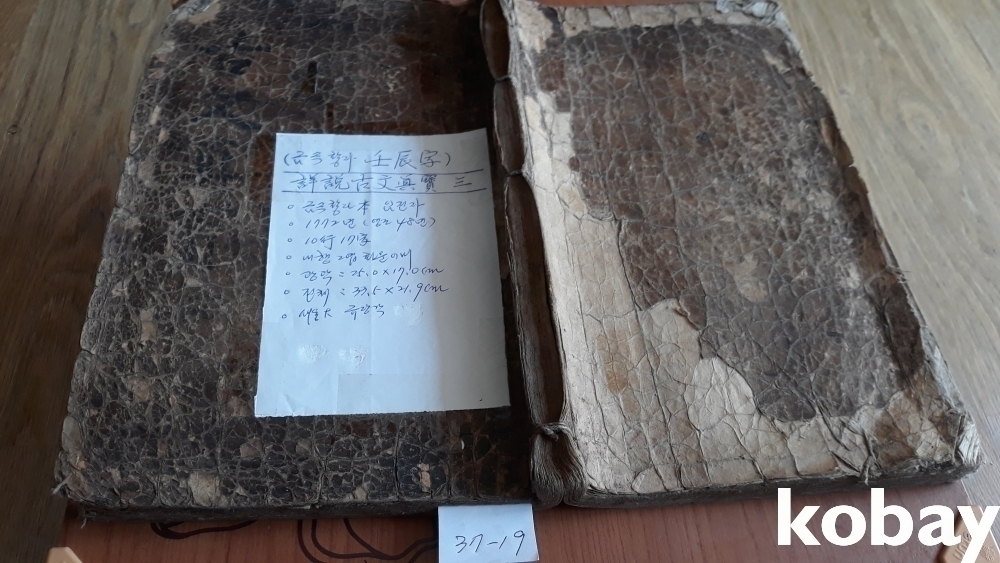 (금속활자 壬辰字)
詳說古文眞寶 三
○ 금속활자本 임진자
○ 1772년 (영조 48년)
○ 10行 17字
○ 내향 2엽 화문어미
○ 광곽 : 25.0×17.0cm
○ 전체 : 33.5×21.9cm
○ 서울大 규장각
37-19
kobay